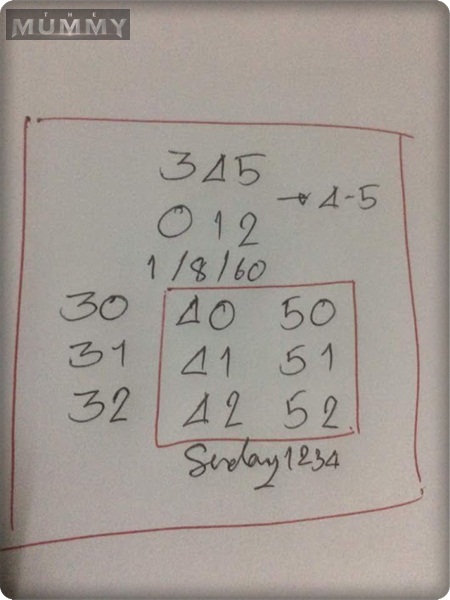 THE
MUMMY
345
012 → 4-5
1/8/60
30 40 50
31 41 51
32 42 52
Serday1234